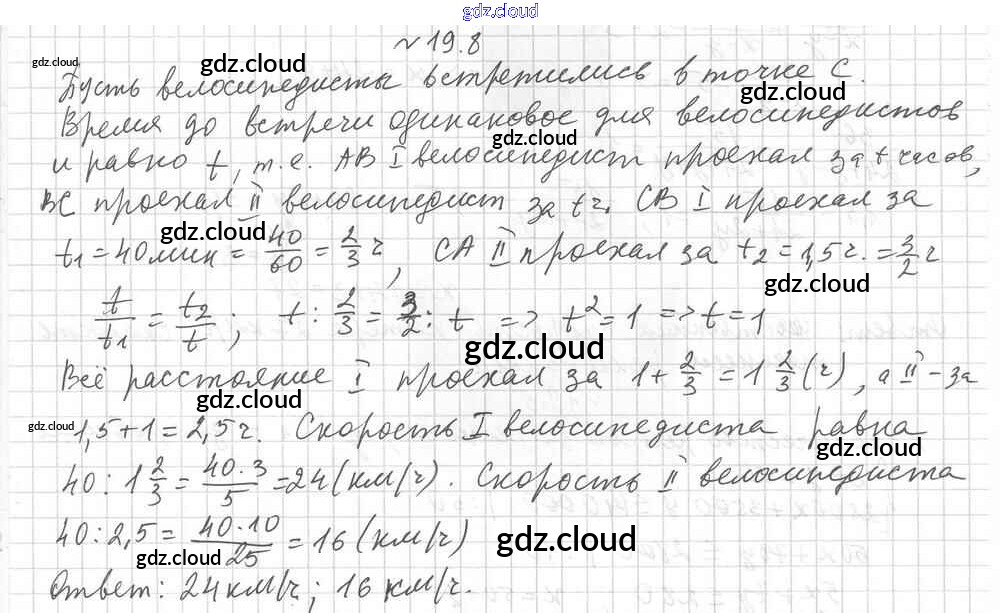 gdz.cloud
№ 19.8
gdz.cloud gdz.cloud
Пусть велосипедисты встретились в точке С.
gdz.cloud
Время до встречи одинаковое для велосипедистов
gdz.cloud
и равно t, т.е. АВ I велосипедист проехал за t часов,
ВС проехал II велосипедист за t ч. СВ I проехал за
gdz.cloud
t₁ = 40 мин = 40/60 = 2/3 ч, СА II проехал за t₂ = 1,5 ч. = 3/2 ч
gdz.cloud
t/t₁ = t₂/t; t : 2/3 = 3/2 : t => t² = 1 => t = 1
gdz.cloud
Всё расстояние I проехал за 1 + 2/3 = 1 2/3 (ч), а II - за
gdz.cloud
gdz.cloud
1,5 + 1 = 2,5 ч. Скорость I велосипедиста равна
gdz.cloud
40 : 1 2/3 = 40·3/5 = 24 (км/ч). Скорость II велосипедиста
40 : 2,5 = 40·10/25 = 16 (км/ч)
gdz.cloud gdz.cloud
Ответ: 24 км/ч; 16 км/ч.